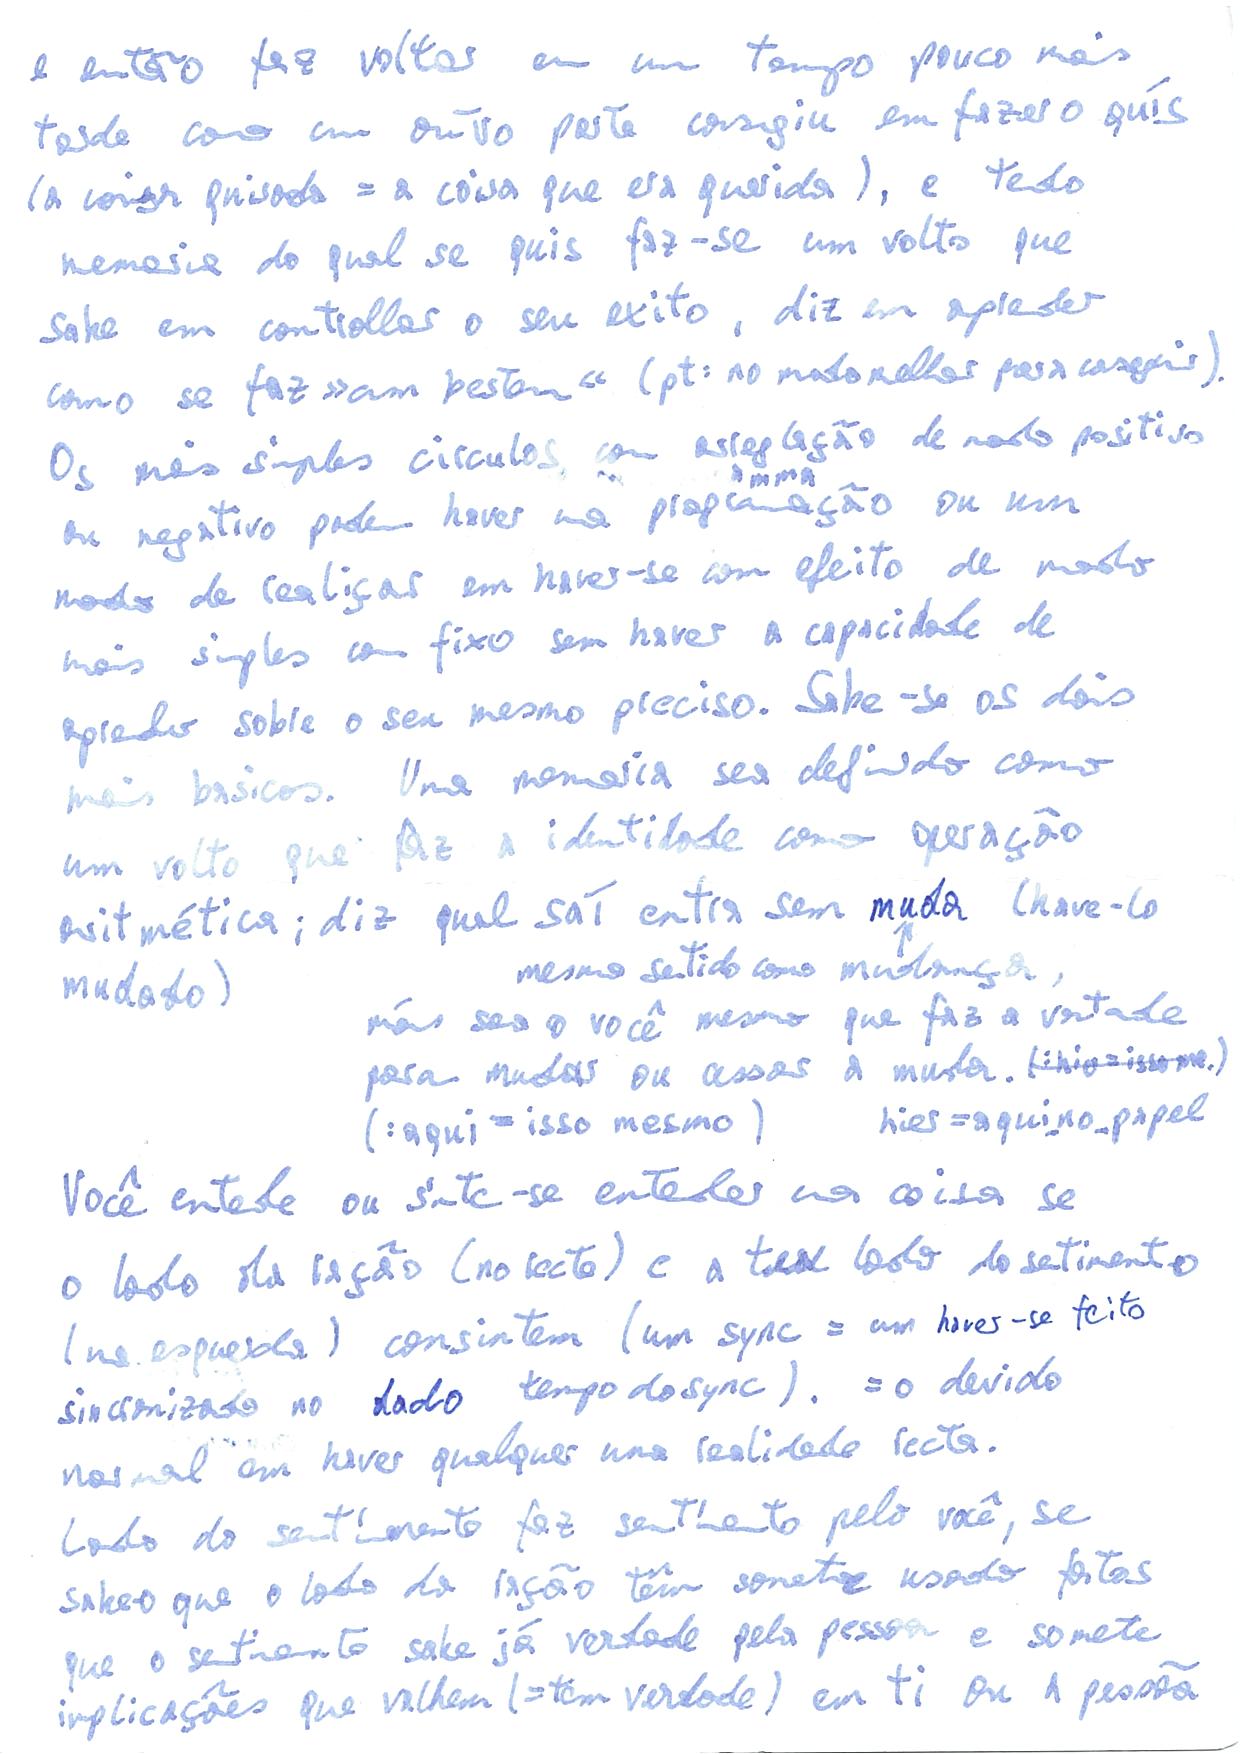 e então faz voltar em um tempo pouco mais
tarde como um outro parte consegiu em fazer o quis
(a coisa quisada = a coisa que era querida), e tedo
memoria do qual se quis faz-se um volto que
sabe em controllar o seu exito, diz em aprender
como se faz »am besten« (pt: no modo melhor para conseguir).
Os mais simples circulos com asreglação de modo positivo
ou negativo podem haver na programação ou um
modo de realiçar em haver-se com efeito de modo
mais simples com fixo sem haver a capacidade de
aprender sobre o seu mesmo preciso. Sabe-se os dois
mais basicos. Uma memoria sea definido como
um volto que faz a identidade como operação
aritmética; diz qual saí entra sem muda (have-lo
mudado)
mesmo sentido como mudança,
más sea o você mesmo que faz a vontade
para mudar ou cessar a muda.
(:aqui = isso mesmo) hier = aqui_no_papel
Você entede ou sinte-se enteder na coisa se
o lado da ração (no recto) e a lado do setimento
(na esquerda) consintem (um sync = um haver-se feito
sincronizado no dado tempo do sync). = o devido
normal em haver qualquer uma realidade recta.
Lado do sentimento faz sentimento pelo você, se
sabeo que o lado da ração têm somete usado fatos
que o setimento sabe já verdade pela pessoa e somete
implicações que valhem (= têm verdade) em ti ou a pessoa